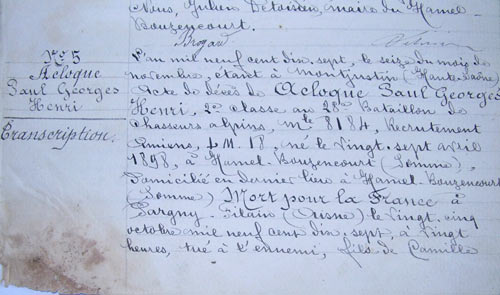 Nous, Julien Detoisien, maire du Hamel-
Bouzencourt.
Brogard
No 5
Acloque
Paul Georges
Henri
Transcription.
L'an mil neuf cent dix sept, le seize du mois de
novembre, étant à Montjustin (Haute Saône)
Acte de décès de Acloque Paul Georges
Henri, 2e classe au 28e Bataillon de
chasseurs alpins, mle 8184, Recrutement
Amiens, LM. 18, né le vingt-sept avril
1898, à Hamel-Bouzencourt (Somme),
Domicilié en dernier lieu à Hamel-Bouzencourt
(Somme) Mort pour la France à
Pargny-Filain (Aisne) le vingt-cinq
octobre mil neuf cent dix-sept, à vingt
heures, tué à l'ennemi, fils de Camille